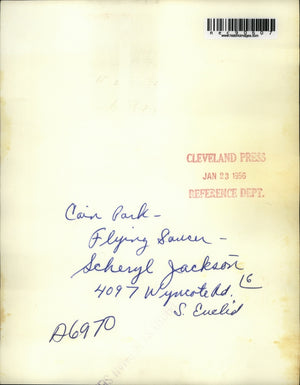 CLEVELAND PRESS
JAN 23 1966
REFERENCE DEPT.
Cain Park -
Flying Saucer -
Scheryl Jackson
16
4097 Wyncote Rd.
S. Euclid
A6970